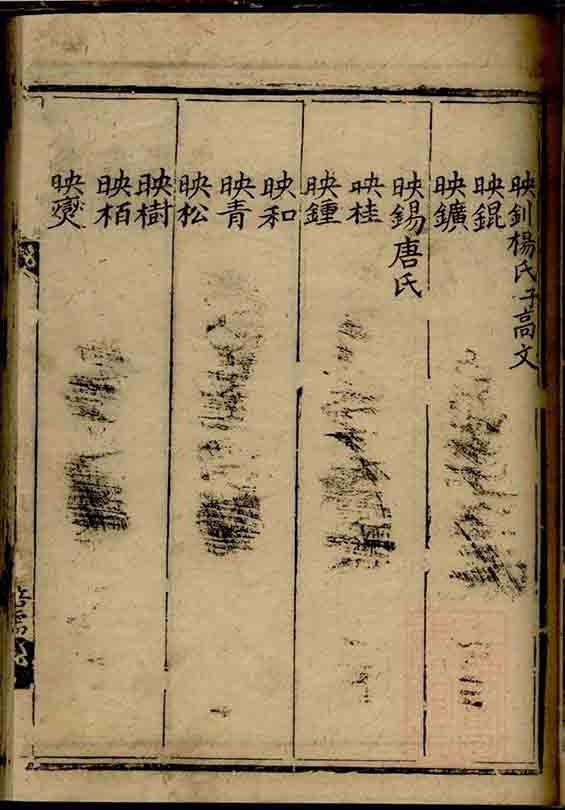 映釧楊氏子高文
映錕
映鑛
映錫唐氏
映桂
映鍾
映和
映青
映松
映樹
映栢
映爕